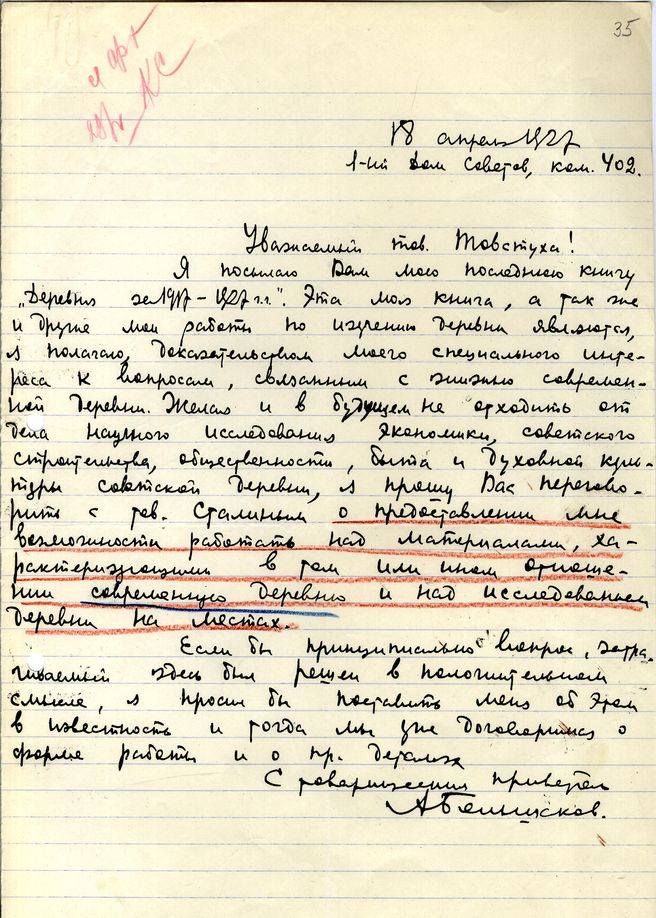 35
18 апрель 1927
1-ый Дом Советов, ком. 402.
Уважаемый тов. Товстуха!
Я посылаю Вам мою последнюю книгу
„Деревня за 1917–1927 г.г." Эта моя книга, а так же
и другие мои работы по изучению деревни являются,
я полагаю, доказательством моего специального инте-
реса к вопросам, связанным с жизнью современ-
ной деревни. Желая и в будущем не отходить от
дела научного исследования экономики, советского
строительства, общественности, быта и духовной куль-
туры советской деревни, я прошу Вас перегово-
рить с тов. Сталиным о предоставлении мне
возможности работать над материалами, ха-
рактеризующими в том или ином отноше-
нии современную деревню и над исследованием
деревни на местах.
Если бы принципиально вопрос, затра-
гиваемый здесь был решен в положительном
смысле, я просил бы поставить меня об этом
в известность и тогда мы уже договоримся о
форме работы и о пр. деталях
С товарищеским приветом